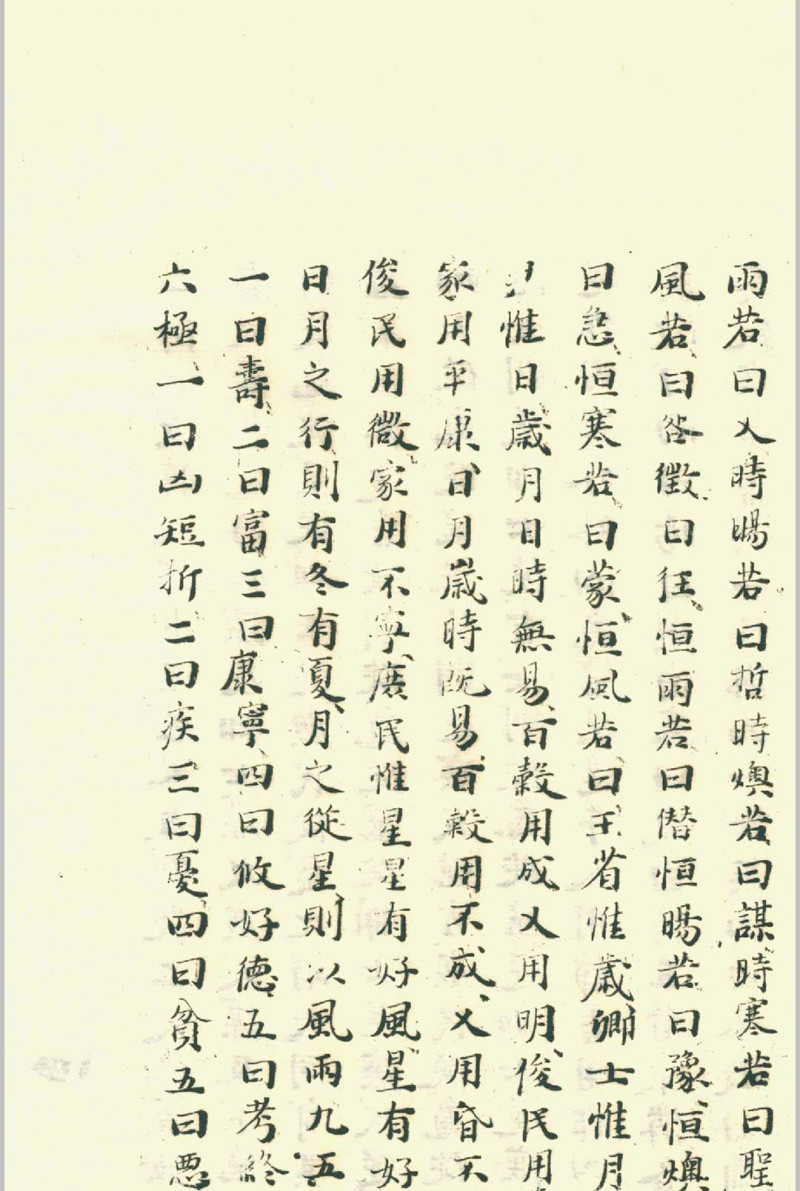 雨若曰乂時暘若曰哲時燠若曰謀時寒若曰聖
風若曰咎徵曰狂恒雨若曰僭恒暘若曰豫恒燠
曰急恒寒若曰蒙恒風若曰王省惟歲卿士惟月
尹惟日歲月日時無易百穀用成乂用明俊民用
家用平康日月歲時既易百穀用不成乂用昏不
俊民用微家用不寧庶民惟星星有好風星有好
日月之行則有冬有夏月之從星則以風雨九五
一曰壽二曰富三曰康寧四曰攸好德五曰考終
六極一曰凶短折二曰疾三曰憂四曰貧五曰惡